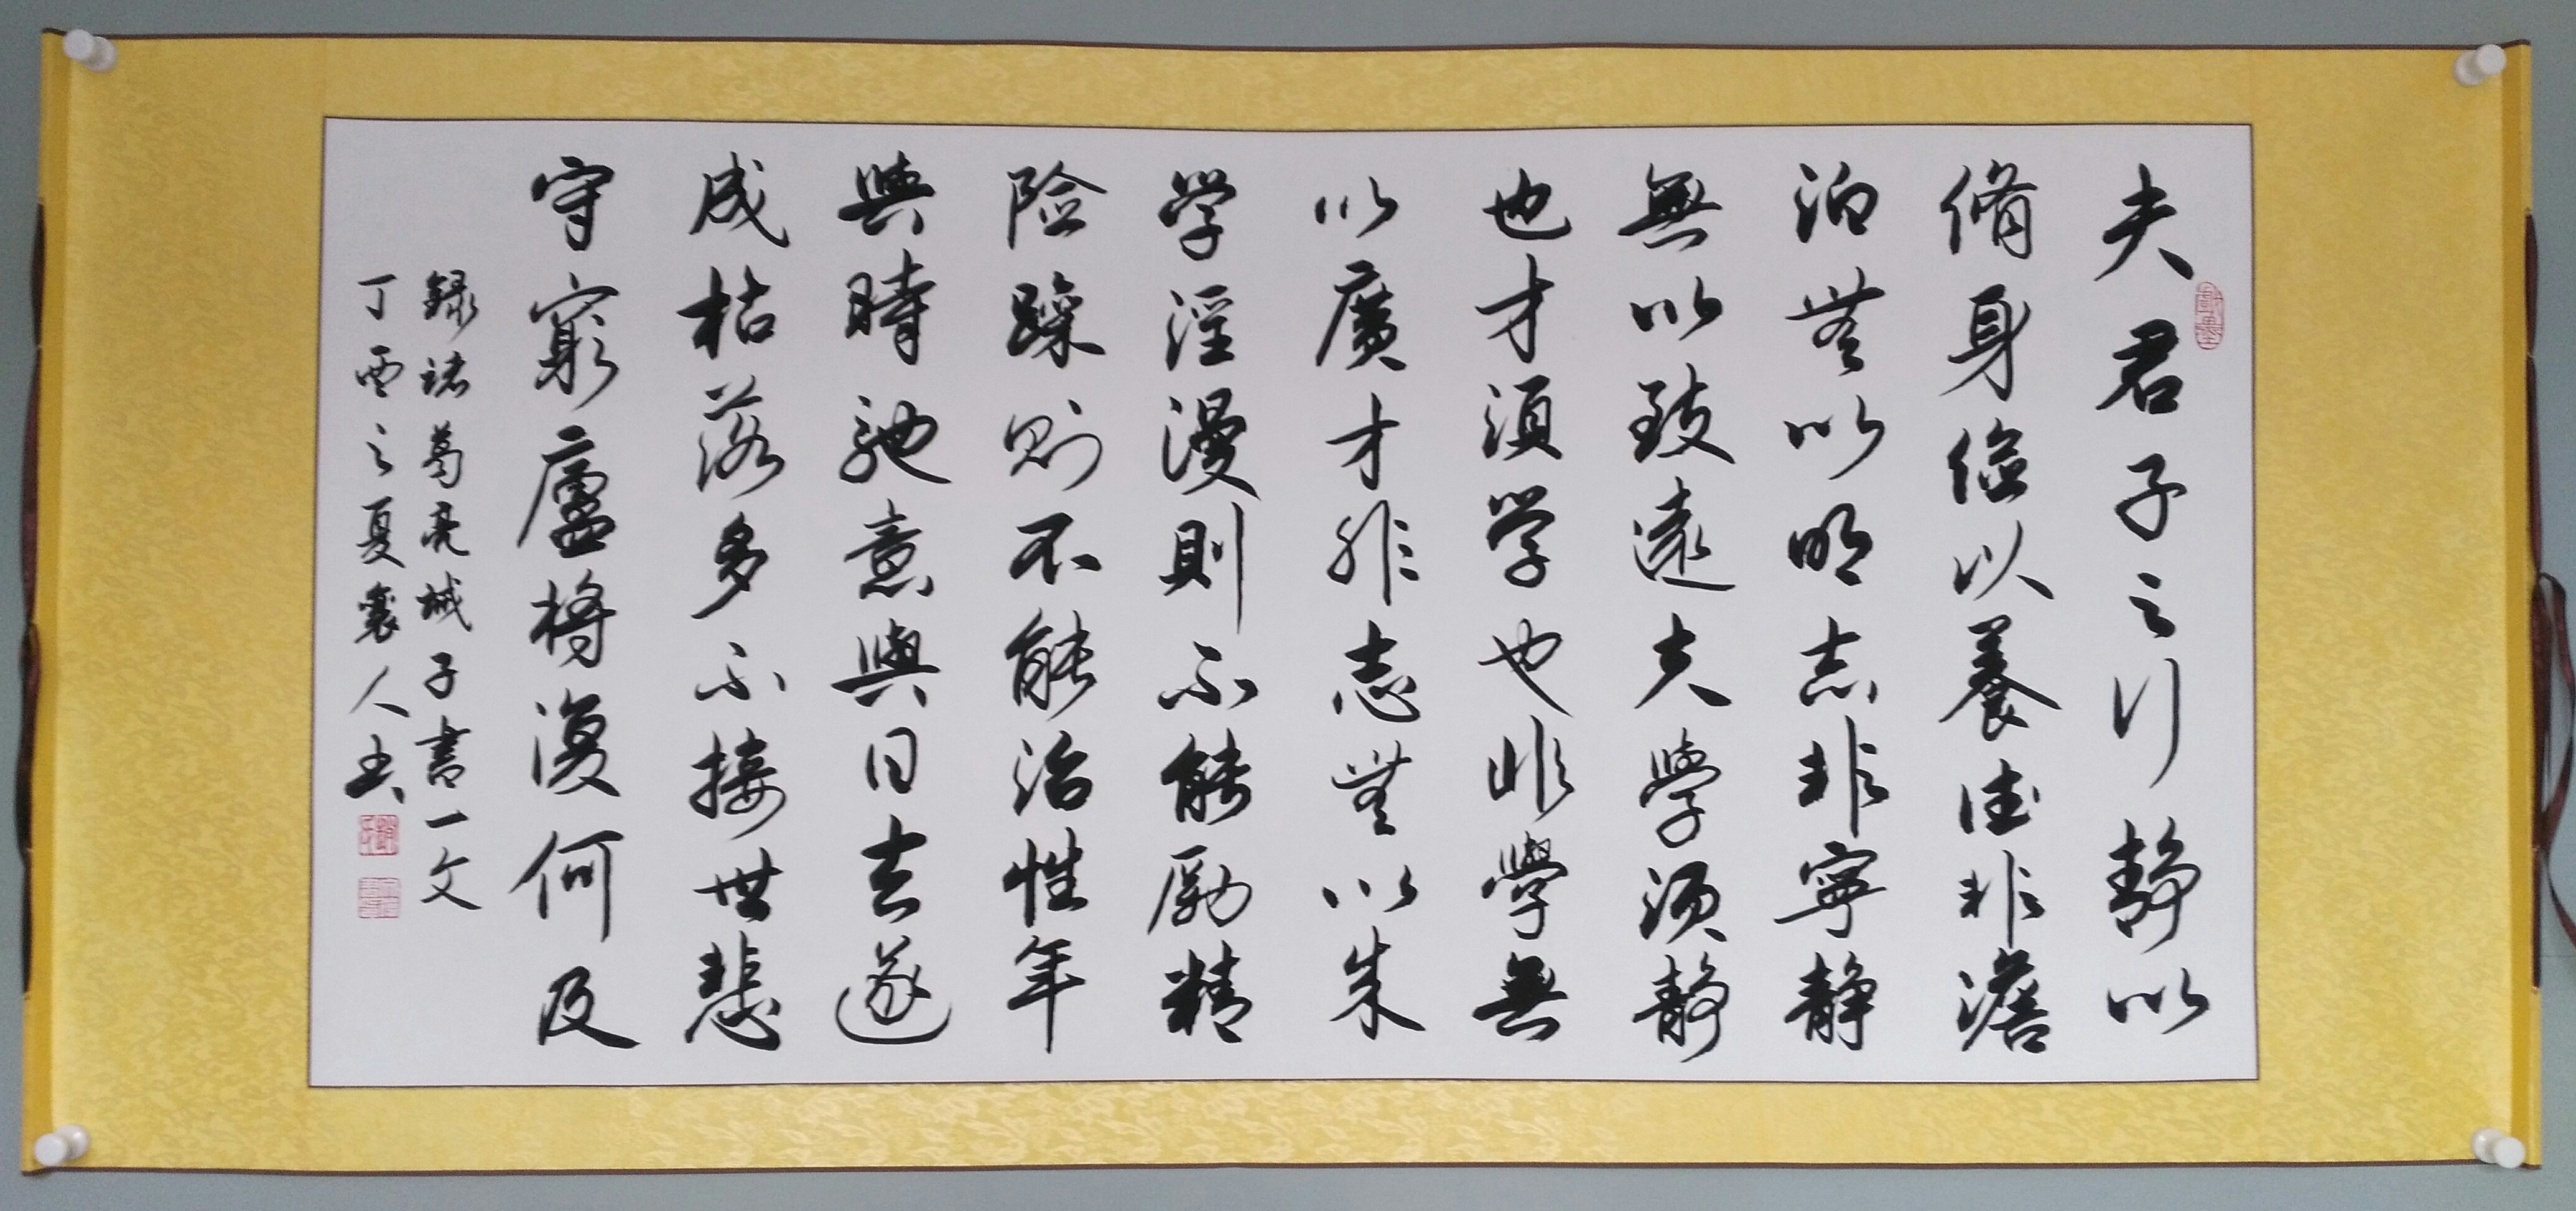 夫君子之行静以
脩身儉以養德非澹
泊無以明志非寧静
無以致遠夫學須静
也才須学也非學無
以廣才非志無以成
学淫漫則不能勵精
险躁则不能治性年
與時馳意與日去遂
成枯落多不接世悲
守窮廬將復何及
録诸葛亮誡子書一文
丁酉之夏襄人書